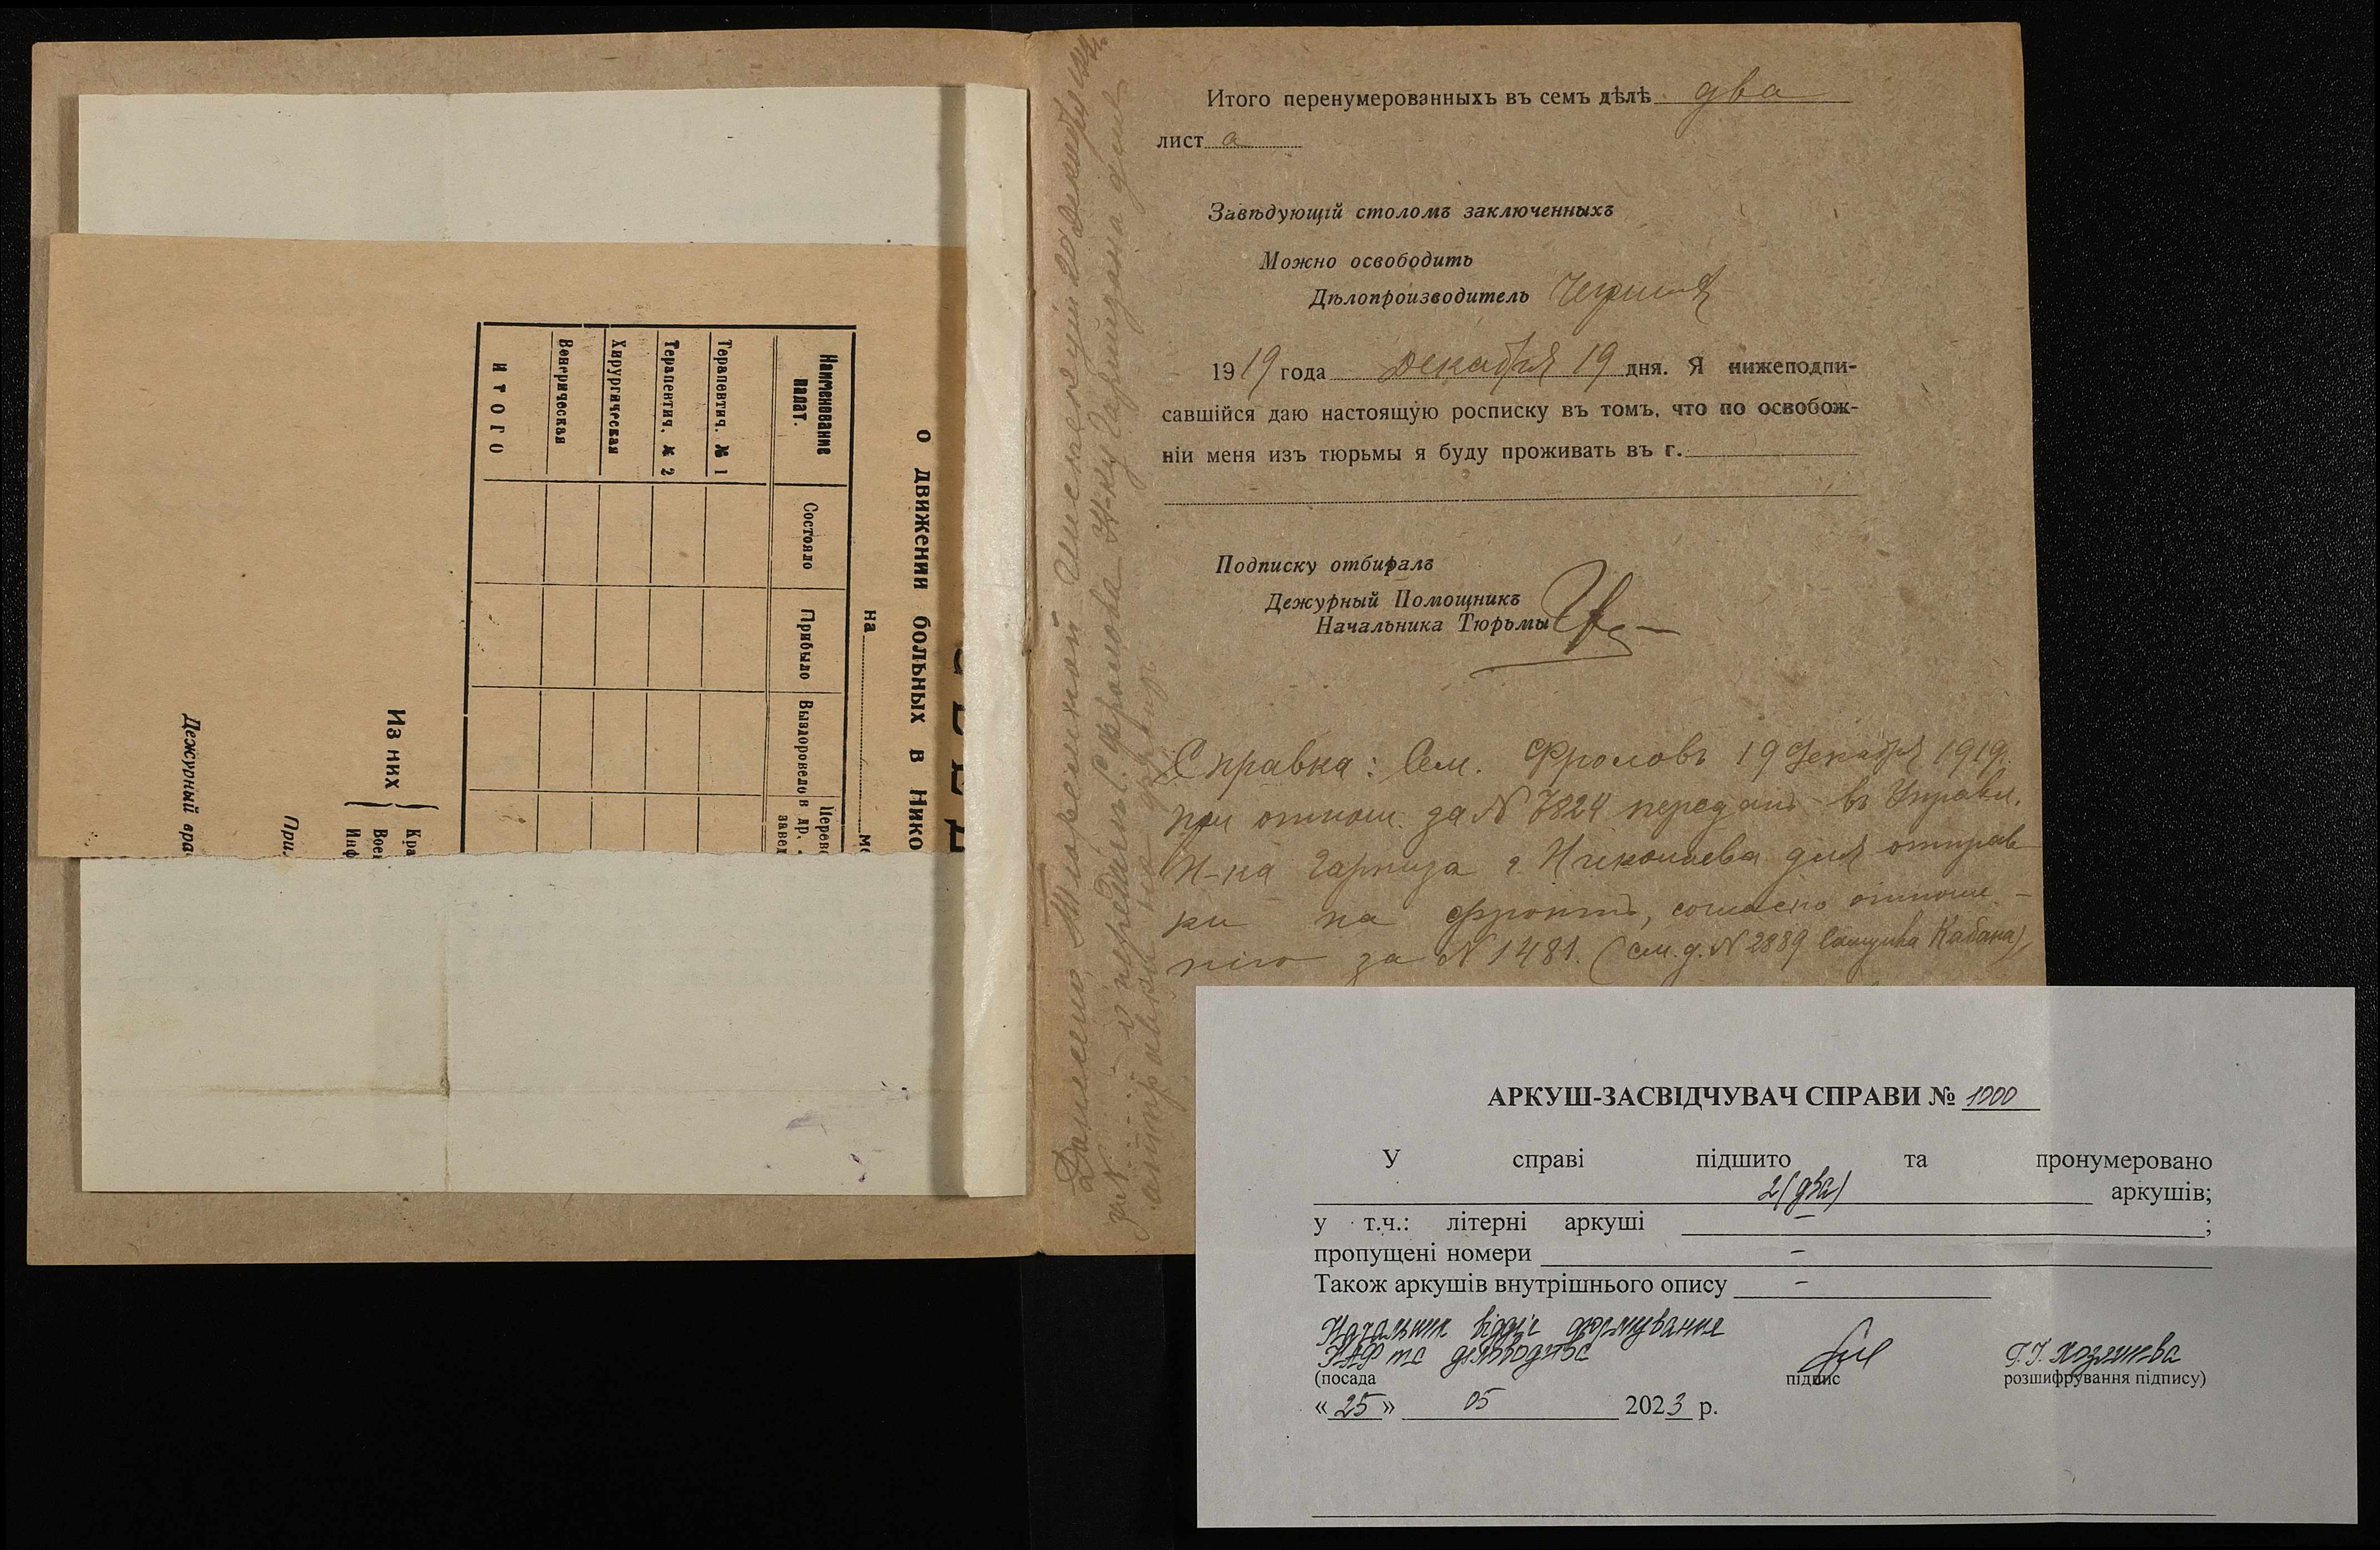 о движении больных в Нико
на
Наименование палат.
Состояло
Прибыло
Выздоровело
Терапевтич. № 1
Терапевтич. № 2
Хирургическая
Венерическая
ИТОГО
Из них
Кра
Вое
Инф
При.
Дежурный вра
Итого перенумерованныхъ въ семъ дѣлѣ два
лист а
Завѣдующій столомъ заключенныхъ
Можно освободить
Дѣлопроизводитель
1919 года декабря 19 дня. Я нижеподпи-
савшійся даю настоящую росписку въ томъ, что по освобож-
ніи меня изъ тюрьмы я буду проживать въ г.
Подписку отбиралъ
Дежурный Помощникъ
Начальника Тюрьмы
Справка: Сем. Фроловъ 19 декабря 1919
при отнош. за N 7824 переданъ въ Управл.
Н-ка Гарниза г. Николаева для отправ
ки на фронтъ, согласно отноше-
нію за N 1481. (см. д. N 2889 Кабана)
АРКУШ-ЗАСВІДЧУВАЧ СПРАВИ № 1000
У справі підшито та пронумеровано
2 (два) аркушів;
у т.ч.: літерні аркуші – ;
пропущені номери –
Також аркушів внутрішнього опису –
Начальник відділ формування
НАФ та діловодства
(посада підпис розшифрування підпису)
« 25 » 05 2023 р.